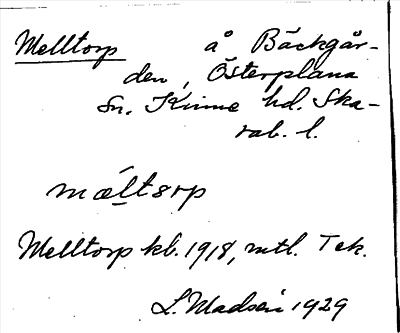 Melltorp å Bäckgår-
den, Österplana
Sn. Kinne hd. Ska-
rab. l.
mæ̀ltərp
Melltorp kb. 1918, mtl. Tek.
L. Madsén 1929